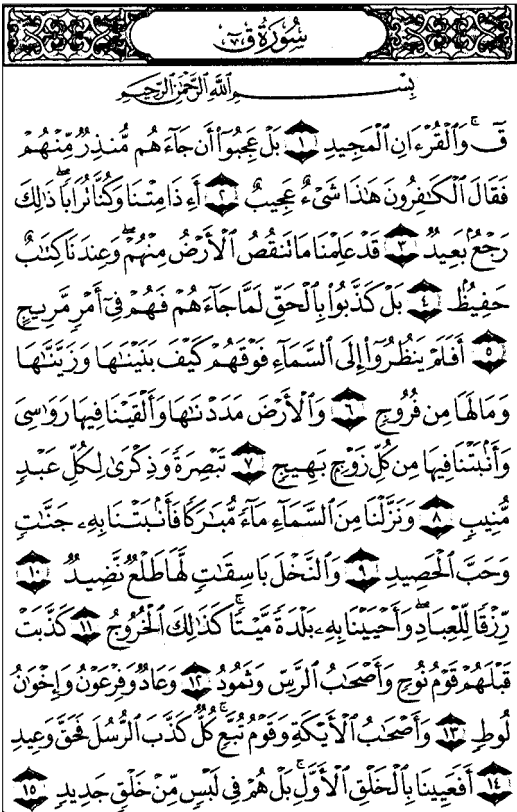 سُورَةُ قٓ
بِسْمِ ٱللَّهِ ٱلرَّحْمَٰنِ ٱلرَّحِيمِ
قٓ ۚ وَٱلْقُرْءَانِ ٱلْمَجِيدِ ١ بَلْ عَجِبُوٓا۟ أَن جَآءَهُم مُّنذِرٌ مِّنْهُمْ
فَقَالَ ٱلْكَٰفِرُونَ هَٰذَا شَىْءٌ عَجِيبٌ ٢ أَءِذَا مِتْنَا وَكُنَّا تُرَابًا ۖ ذَٰلِكَ
رَجْعٌۢ بَعِيدٌ ٣ قَدْ عَلِمْنَا مَا تَنقُصُ ٱلْأَرْضُ مِنْهُمْ ۖ وَعِندَنَا كِتَٰبٌ
حَفِيظٌۢ ٤ بَلْ كَذَّبُوا۟ بِٱلْحَقِّ لَمَّا جَآءَهُمْ فَهُمْ فِىٓ أَمْرٍ مَّرِيجٍ
٥ أَفَلَمْ يَنظُرُوٓا۟ إِلَى ٱلسَّمَآءِ فَوْقَهُمْ كَيْفَ بَنَيْنَٰهَا وَزَيَّنَّٰهَا
وَمَا لَهَا مِن فُرُوجٍ ٦ وَٱلْأَرْضَ مَدَدْنَٰهَا وَأَلْقَيْنَا فِيهَا رَوَٰسِىَ
وَأَنۢبَتْنَا فِيهَا مِن كُلِّ زَوْجٍۭ بَهِيجٍ ٧ تَبْصِرَةً وَذِكْرَىٰ لِكُلِّ عَبْدٍ
مُّنِيبٍ ٨ وَنَزَّلْنَا مِنَ ٱلسَّمَآءِ مَآءً مُّبَٰرَكًا فَأَنۢبَتْنَا بِهِۦ جَنَّٰتٍ
وَحَبَّ ٱلْحَصِيدِ ٩ وَٱلنَّخْلَ بَاسِقَٰتٍ لَّهَا طَلْعٌ نَّضِيدٌ ١٠
رِّزْقًا لِّلْعِبَادِ ۖ وَأَحْيَيْنَا بِهِۦ بَلْدَةً مَّيْتًا ۚ كَذَٰلِكَ ٱلْخُرُوجُ ١١ كَذَّبَتْ
قَبْلَهُمْ قَوْمُ نُوحٍ وَأَصْحَٰبُ ٱلرَّسِّ وَثَمُودُ ١٢ وَعَادٌ وَفِرْعَوْنُ وَإِخْوَٰنُ
لُوطٍ ١٣ وَأَصْحَٰبُ ٱلْأَيْكَةِ وَقَوْمُ تُبَّعٍ ۚ كُلٌّ كَذَّبَ ٱلرُّسُلَ فَحَقَّ وَعِيدِ
١٤ أَفَعَيِينَا بِٱلْخَلْقِ ٱلْأَوَّلِ ۚ بَلْ هُمْ فِى لَبْسٍ مِّنْ خَلْقٍ جَدِيدٍ ١٥